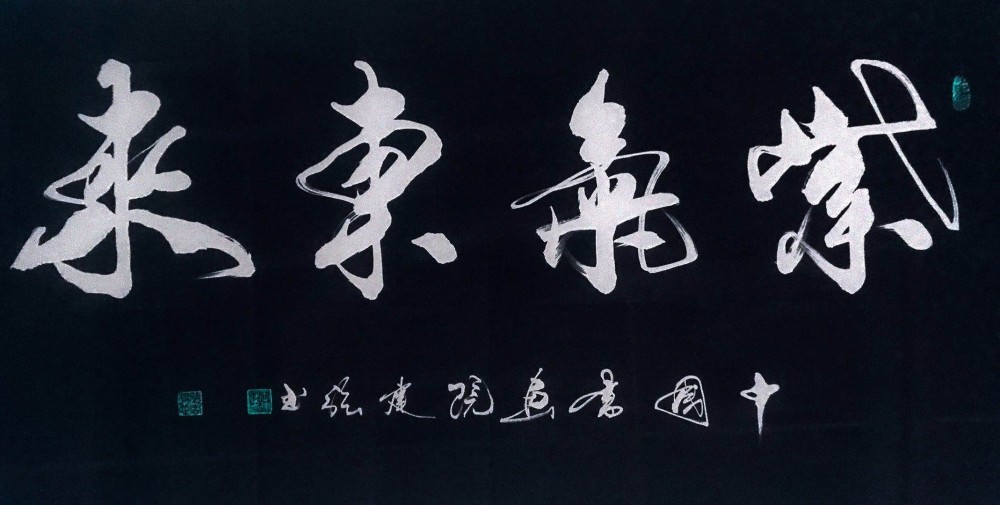 紫氣東來
中國書畫院建強书